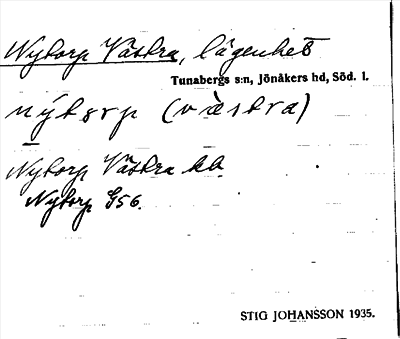 Nytorp Västra, lägenhet
Tunabergs s:n, Jönåkers hd, Söd. l.
nýtorp (vàstra)
Nytorp Västra hb.
Nytorp G56.
STIG JOHANSSON 1935.